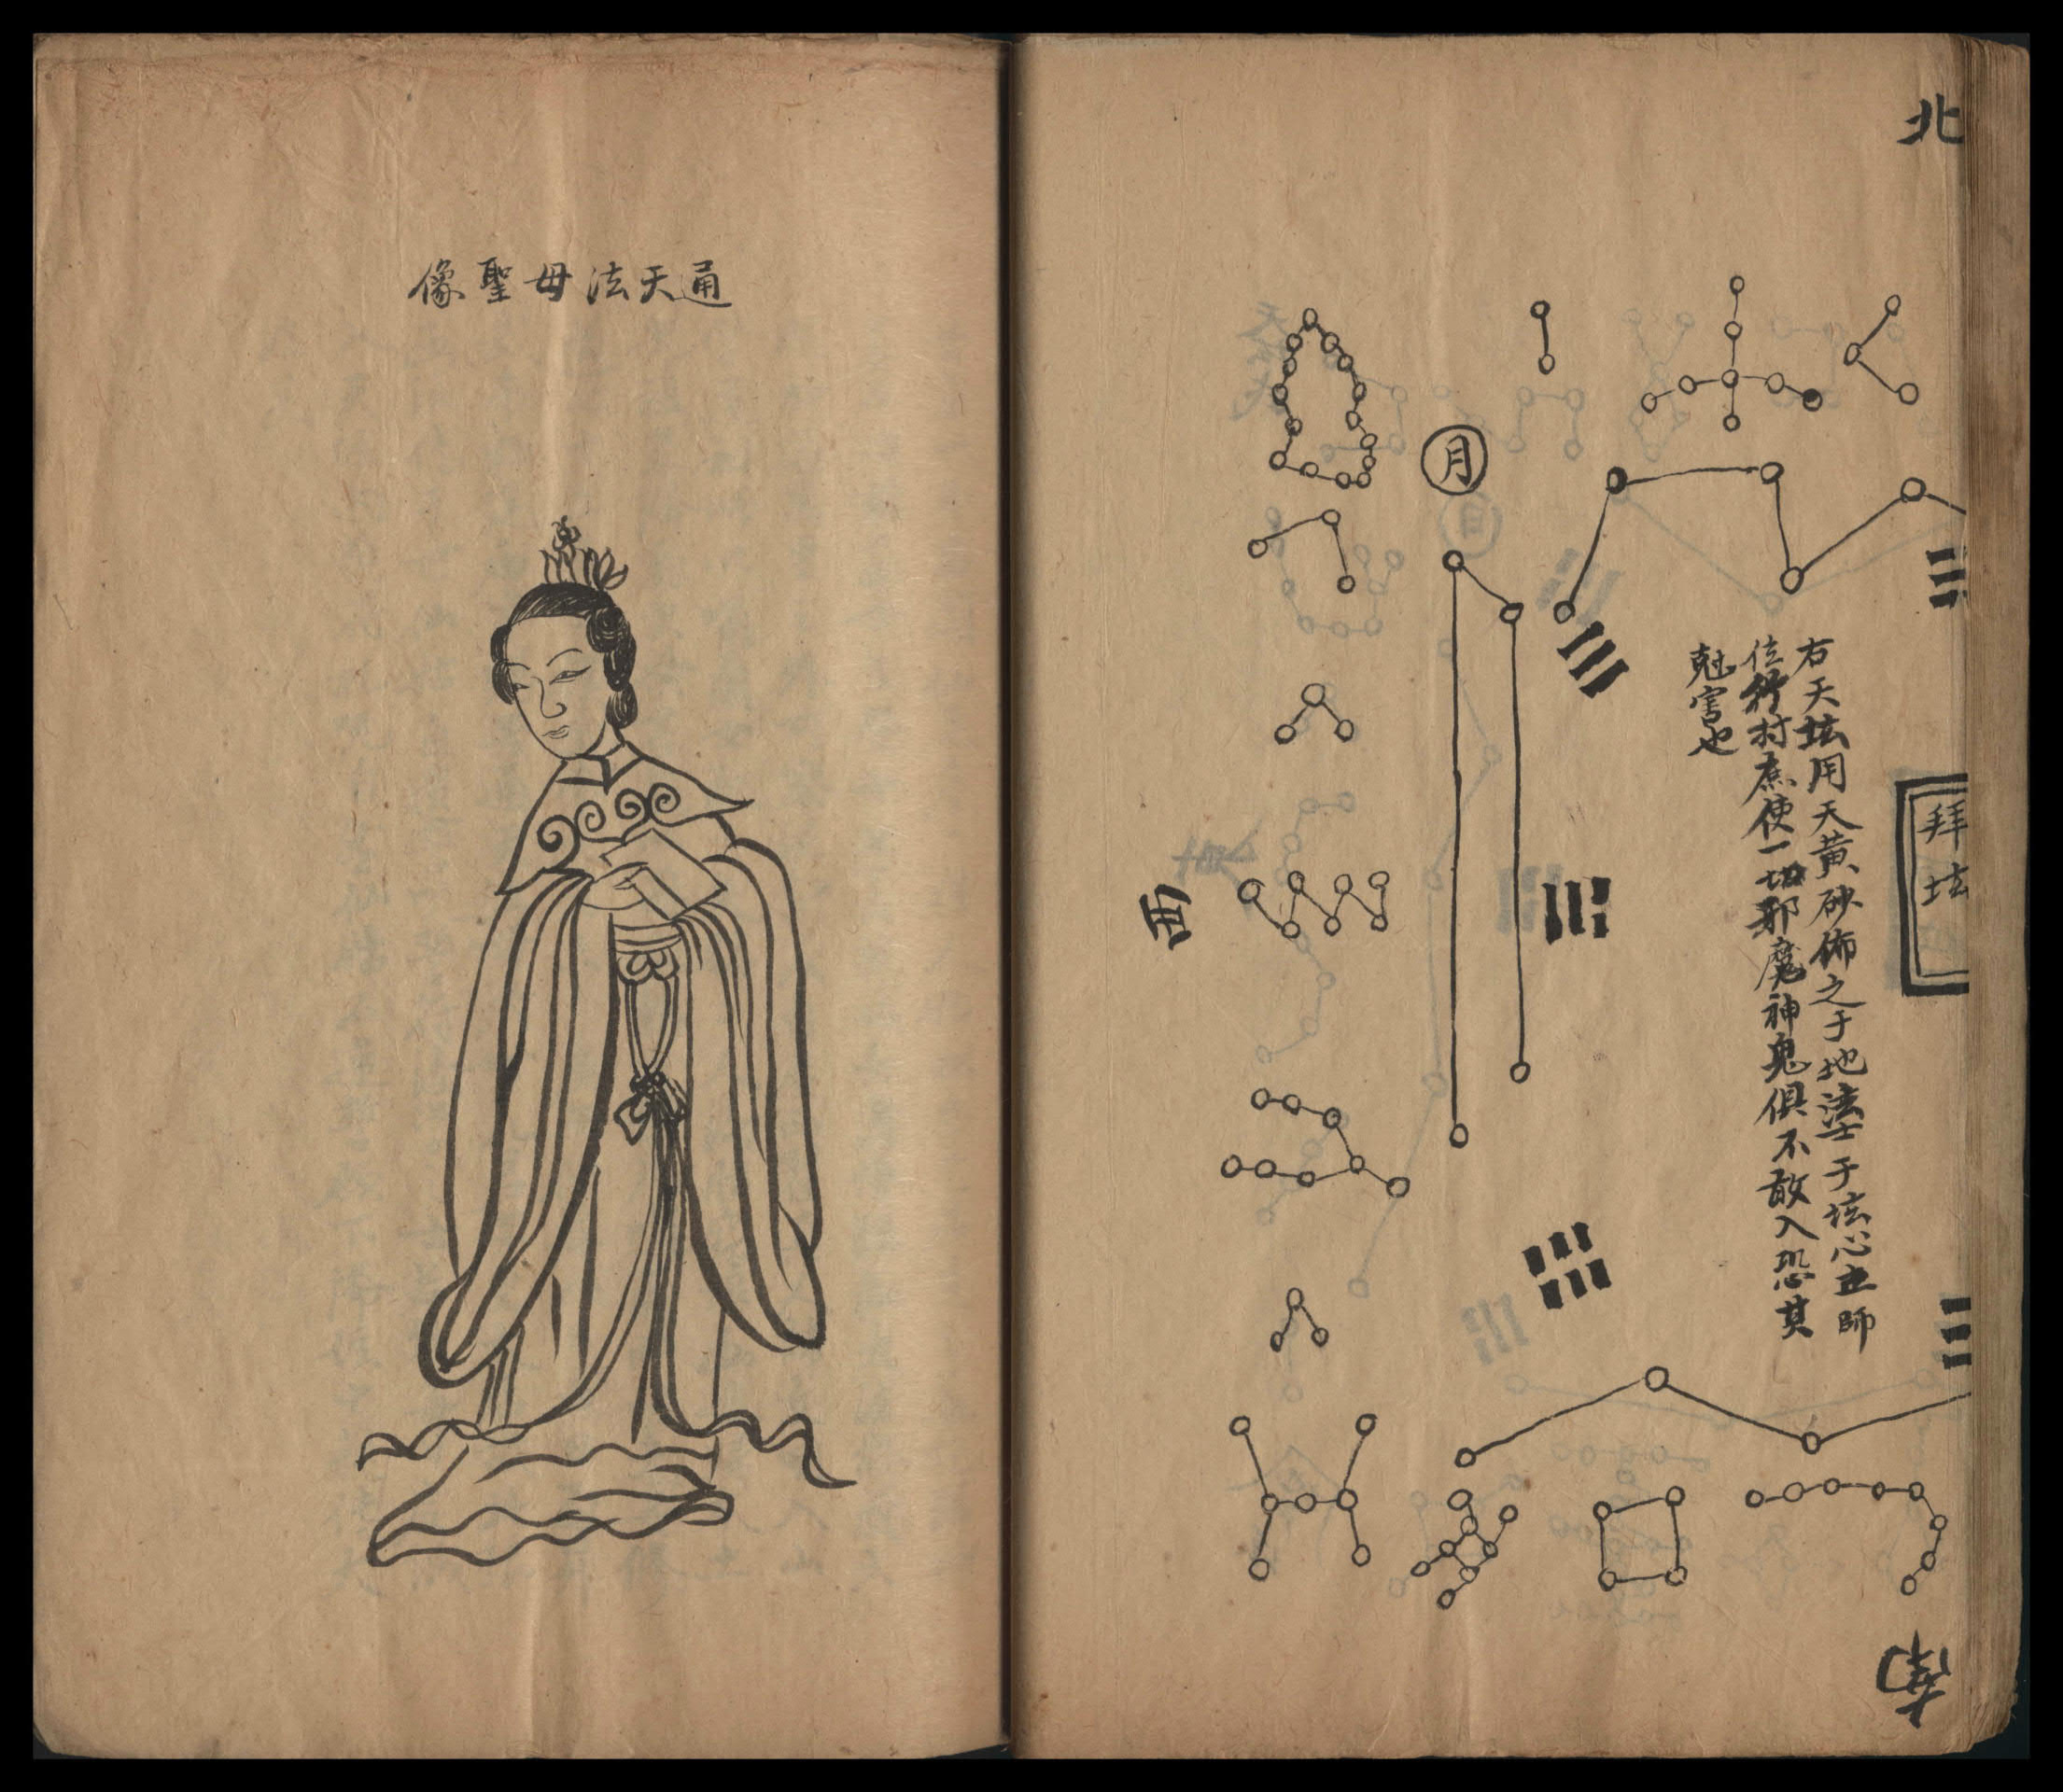 北
月
右天坛用天黄砂佈之于地法士于坛心立師
位行村庶使一切邪魔神鬼俱不敢入恐其
尅害也
拜坛
西
南
通天法母聖像